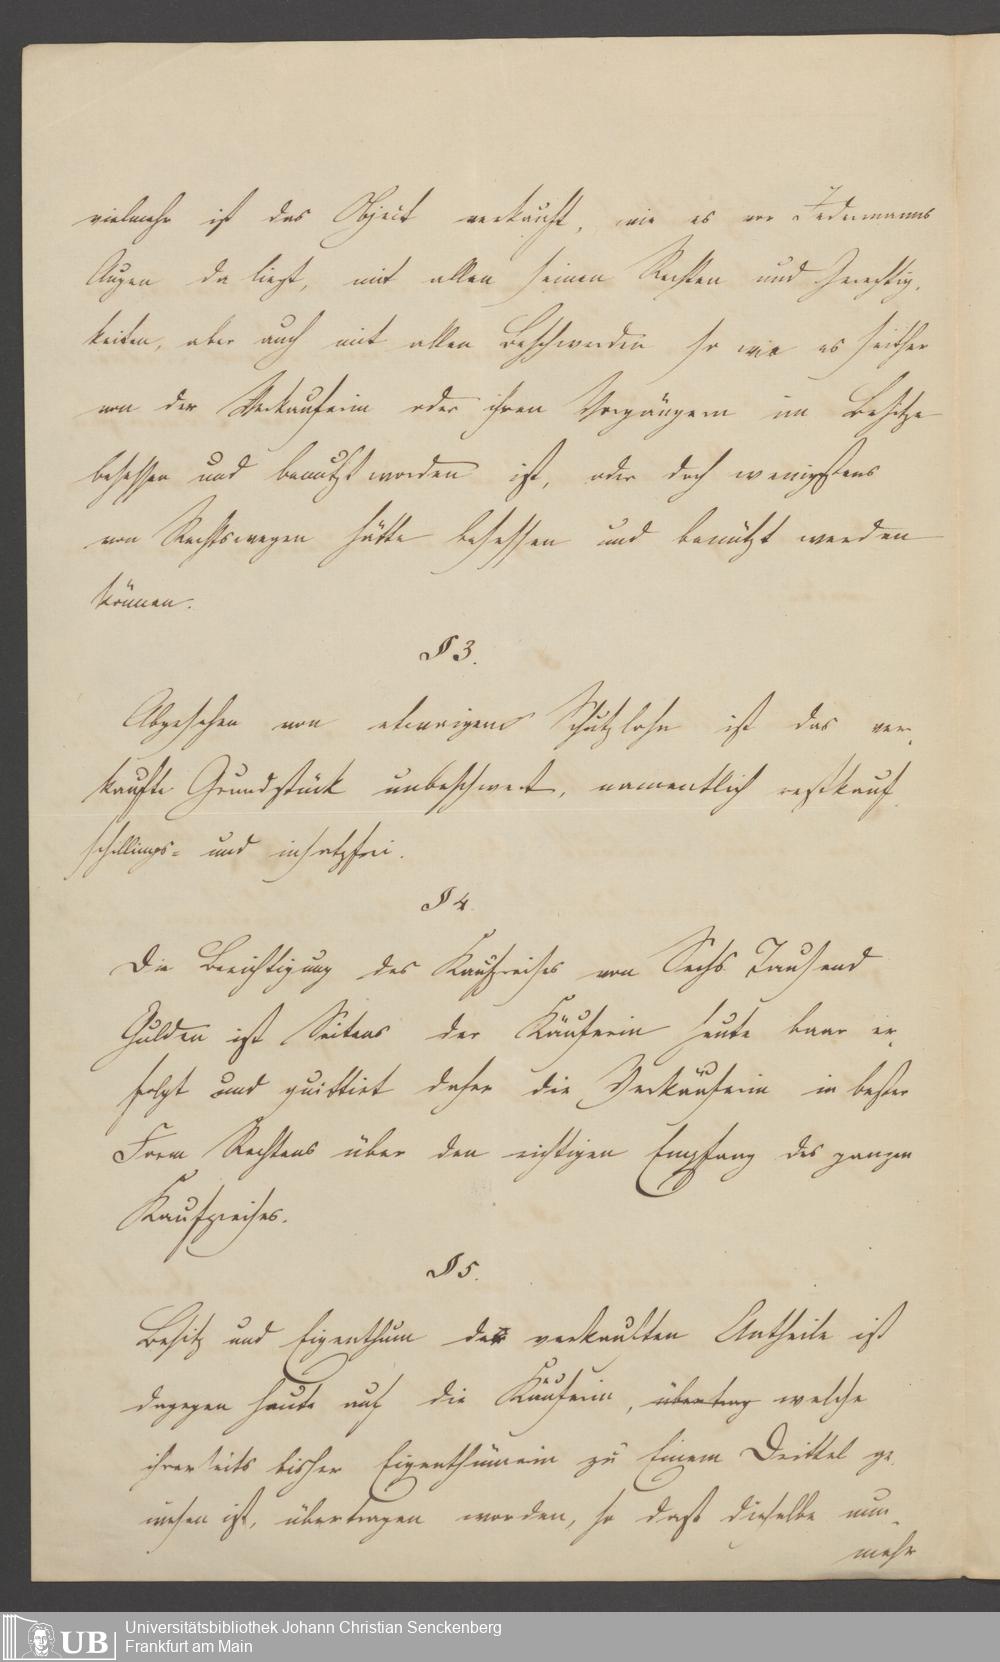 vielmehr ist das Object verkauft, wie es vor Jedermanns
Augen da liegt, mit allen seinen Rechten und Gerechtig-
keiten, aber auch mit allen Beschwerden so wie es seither
von der Verkäuferin oder ihren Vorgängern im Besitze
besessen und benutzt worden ist, oder doch wenigstens
von Rechtswegen hätte besessen und benützt werden
können.
§ 3.
Abgesehen von etwaigem Schutzlohn ist das ver-
kaufte Grundstück unbeschwert, namentlich restkauf-
schillings- und insatzfrei.
§ 4.
Die Berichtigung des Kaufpreises von Sechs Tausend
Gulden ist Seitens der Käuferin heute baar er-
folgt und quittirt daher die Verkäuferin in bester
Form Rechtens über den richtigen Empfang des ganzen
Kaufpreises.
§ 5.
Besitz und Eigenthum der verkauften Antheile ist
dagegen heute auf die Käuferin, übertrag welche
ihrerseits bisher Eigenthümerin zu Einem Drittel ge-
wesen ist, übertragen worden, so daß dieselbe nun-
mehr
UB Universitätsbibliothek Johann Christian Senckenberg
Frankfurt am Main